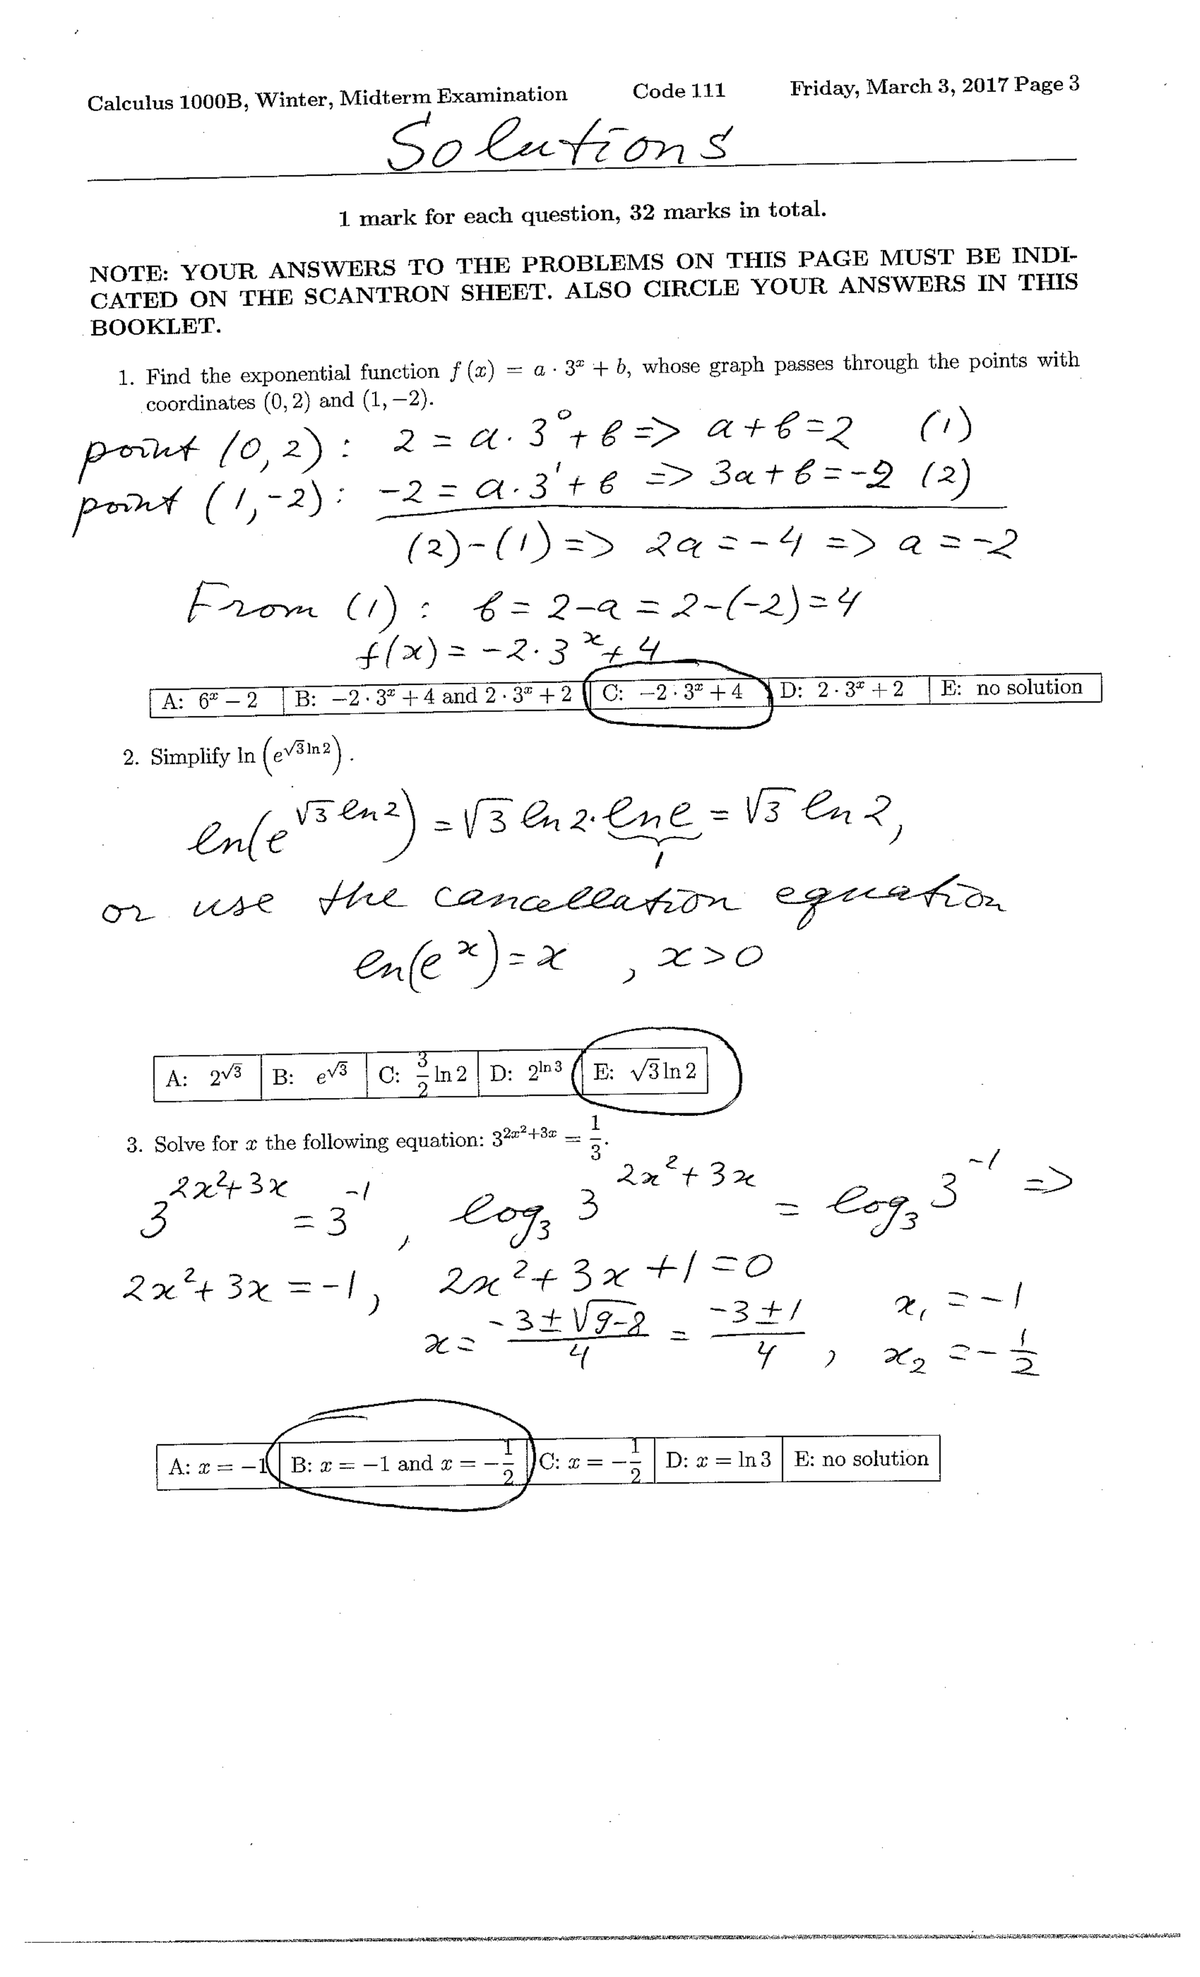 Calculus 1000B, Winter, Midterm Examination Code 111 Friday, March 3, 2017 Page 3
Solutions
1 mark for each question, 32 marks in total.
NOTE: YOUR ANSWERS TO THE PROBLEMS ON THIS PAGE MUST BE INDI-
CATED ON THE SCANTRON SHEET. ALSO CIRCLE YOUR ANSWERS IN THIS
BOOKLET.
1. Find the exponential function f (x) = a · 3^x + b, whose graph passes through the points with
coordinates (0, 2) and (1, −2).
point (0,2): 2 = a · 3^0 + b => a + b = 2 (1)
point (1,-2): -2 = a · 3^1 + b => 3a + b = -2 (2)
(2)-(1) => 2a = -4 => a = -2
From (1): b = 2-a = 2-(-2) = 4
f(x) = -2·3^x + 4
A: 6^x − 2 B: −2 · 3^x + 4 and 2 · 3^x + 2 C: −2 · 3^x + 4 D: 2 · 3^x + 2 E: no solution
2. Simplify ln (e^{√3 ln 2}) .
ln(e^{√3 ln 2}) = √3 ln 2 · ln e = √3 ln 2,
1
or use the cancellation equation
ln(e^x) = x , x > 0
A: 2^{√3} B: e^{√3} C: 3/2 ln 2 D: 2^{ln 3} E: √3 ln 2
3. Solve for x the following equation: 3^{2x²+3x} = 1/3.
3^{2x²+3x} = 3^{-1}, log₃ 3^{2x²+3x} = log₃ 3^{-1} =>
2x² + 3x = -1, 2x² + 3x + 1 = 0
x = (-3 ± √(9-8))/4 = (-3 ± 1)/4 , x₁ = -1
x₂ = -1/2
A: x = −1 B: x = −1 and x = −1/2 C: x = −1/2 D: x = ln 3 E: no solution